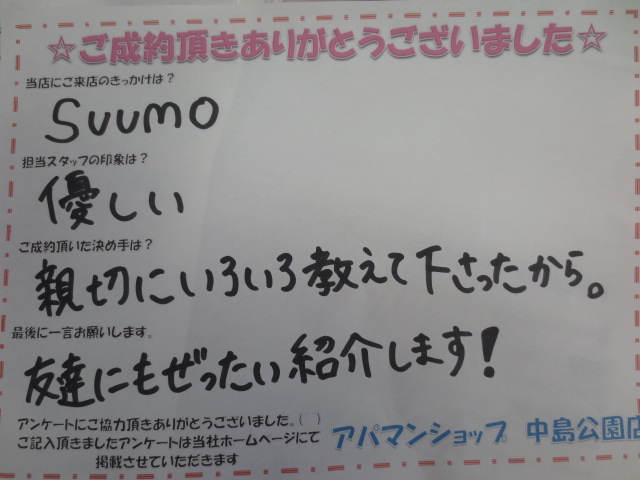 ☆ご成約頂きありがとうございました☆
当店にご来店のきっかけは？
SUUMO
担当スタッフの印象は？
優しい
ご成約頂いた決め手は？
親切にいろいろ教えて下さったから。
最後に一言お願いします。
友達にもぜったい紹介します！
アンケートにご協力頂きありがとうございました。(⌒⌒)
ご記入頂きましたアンケートは当社ホームページにて
掲載させていただきます
アパマンショップ 中島公園店